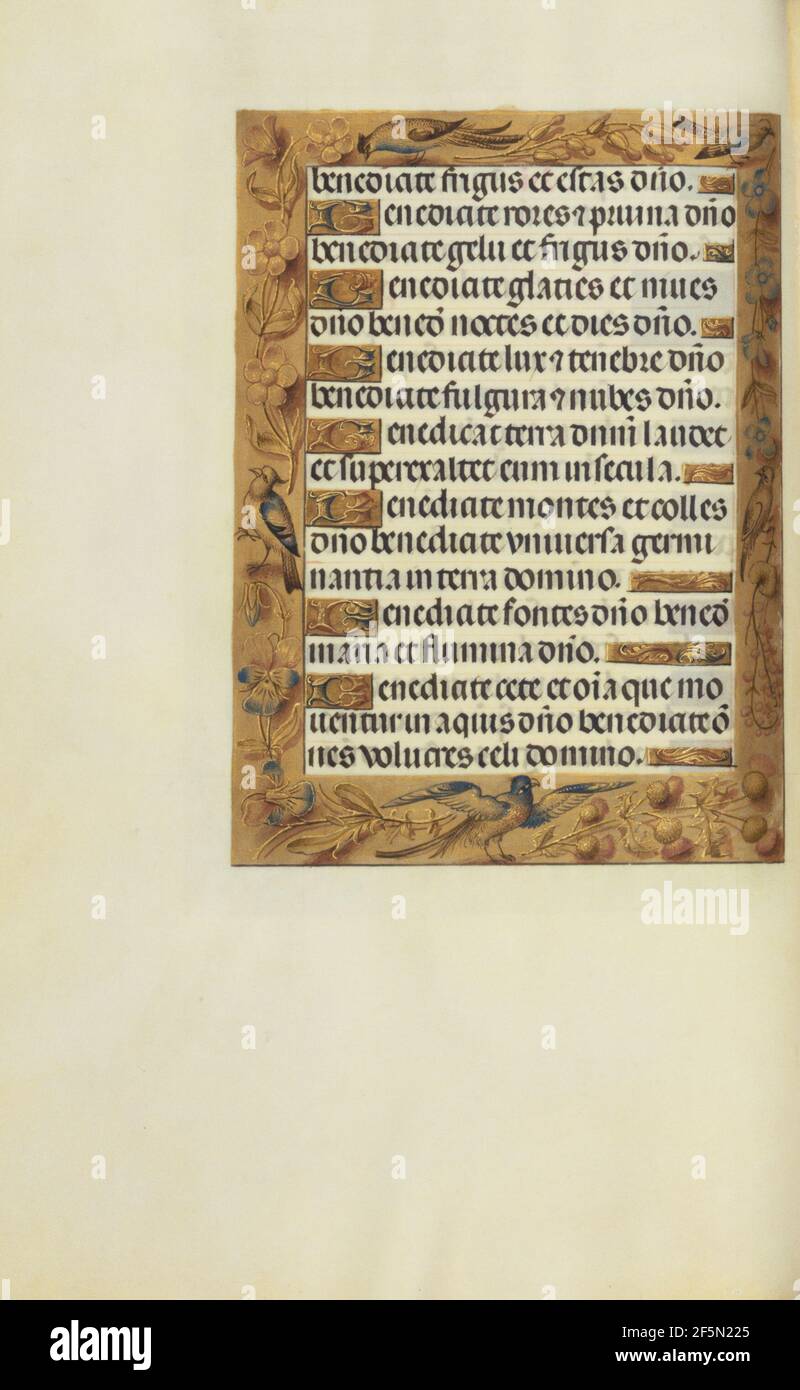 benedicite frigus et estas dño.
Benedicite rores ⁊ pruina dño
benedicite gelu et frigus dño.
Benedicite glacies et niues
dño bened̄ noctes et dies dño.
Benedicite lux ⁊ tenebre dño
benedicite fulgura ⁊ nubes dño.
Benedicat terra dominū laudet
et superexaltet eum in secula.
Benedicite montes et colles
dño benedicite vniuersa germi
nantia in terra domino.
Benedicite fontes dño bened̄
maria et flumina dño.
Benedicite cete et oīa que mo
uentur in aquis dño benedicite ō
nes volucres celi domino.
alamy
alamy
Image ID: 2F5N225
www.alamy.com